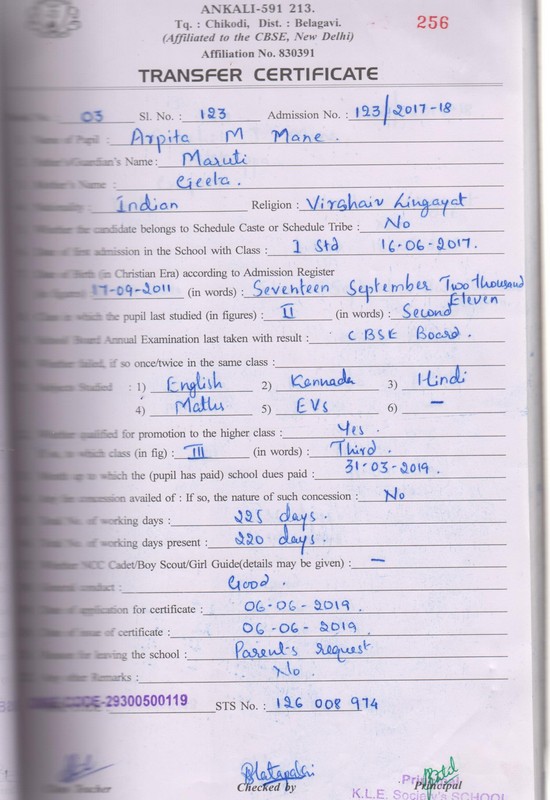 ANKALI-591 213.
Tq. : Chikodi, Dist. : Belagavi.
(Affiliated to the CBSE, New Delhi)
256
Affiliation No. 830391
TRANSFER CERTIFICATE
03 Sl. No. : 123 Admission No. : 123/2017-18
Name of Pupil : Arpita M Mane.
Guardian's Name : Maruti
Name : Geeta.
Indian Religion : Virshaiv Lingayat
Whether the candidate belongs to Schedule Caste or Schedule Tribe : No
Date of first admission in the School with Class : I Std 16-06-2017.
Date of Birth (in Christian Era) according to Admission Register
17-09-2011 (in words) : Seventeen September Two thousand Eleven
Class in which the pupil last studied (in figures) : II (in words) : Second
Board Annual Examination last taken with result : CBSE Board.
Whether failed, if so once/twice in the same class :
Subjects Studied : 1) English 2) Kannada 3) Hindi
4) Maths 5) EVS 6) —
Whether qualified for promotion to the higher class : Yes.
which class (in fig) : III (in words) : Third.
to which the (pupil has paid) school dues paid : 31-03-2019.
concession availed of : If so, the nature of such concession : No
No. of working days : 225 days.
No. of working days present : 220 days.
Whether NCC Cadet/Boy Scout/Girl Guide(details may be given) : —
General conduct : Good.
Date of application for certificate : 06-06-2019.
Date of issue of certificate : 06-06-2019.
Reason for leaving the school : Parent's request
Any other Remarks : No.
CODE-29300500119 STS No. : 126 008 974
Class Teacher Checked by Principal
K.L.E. Society's SCHOOL